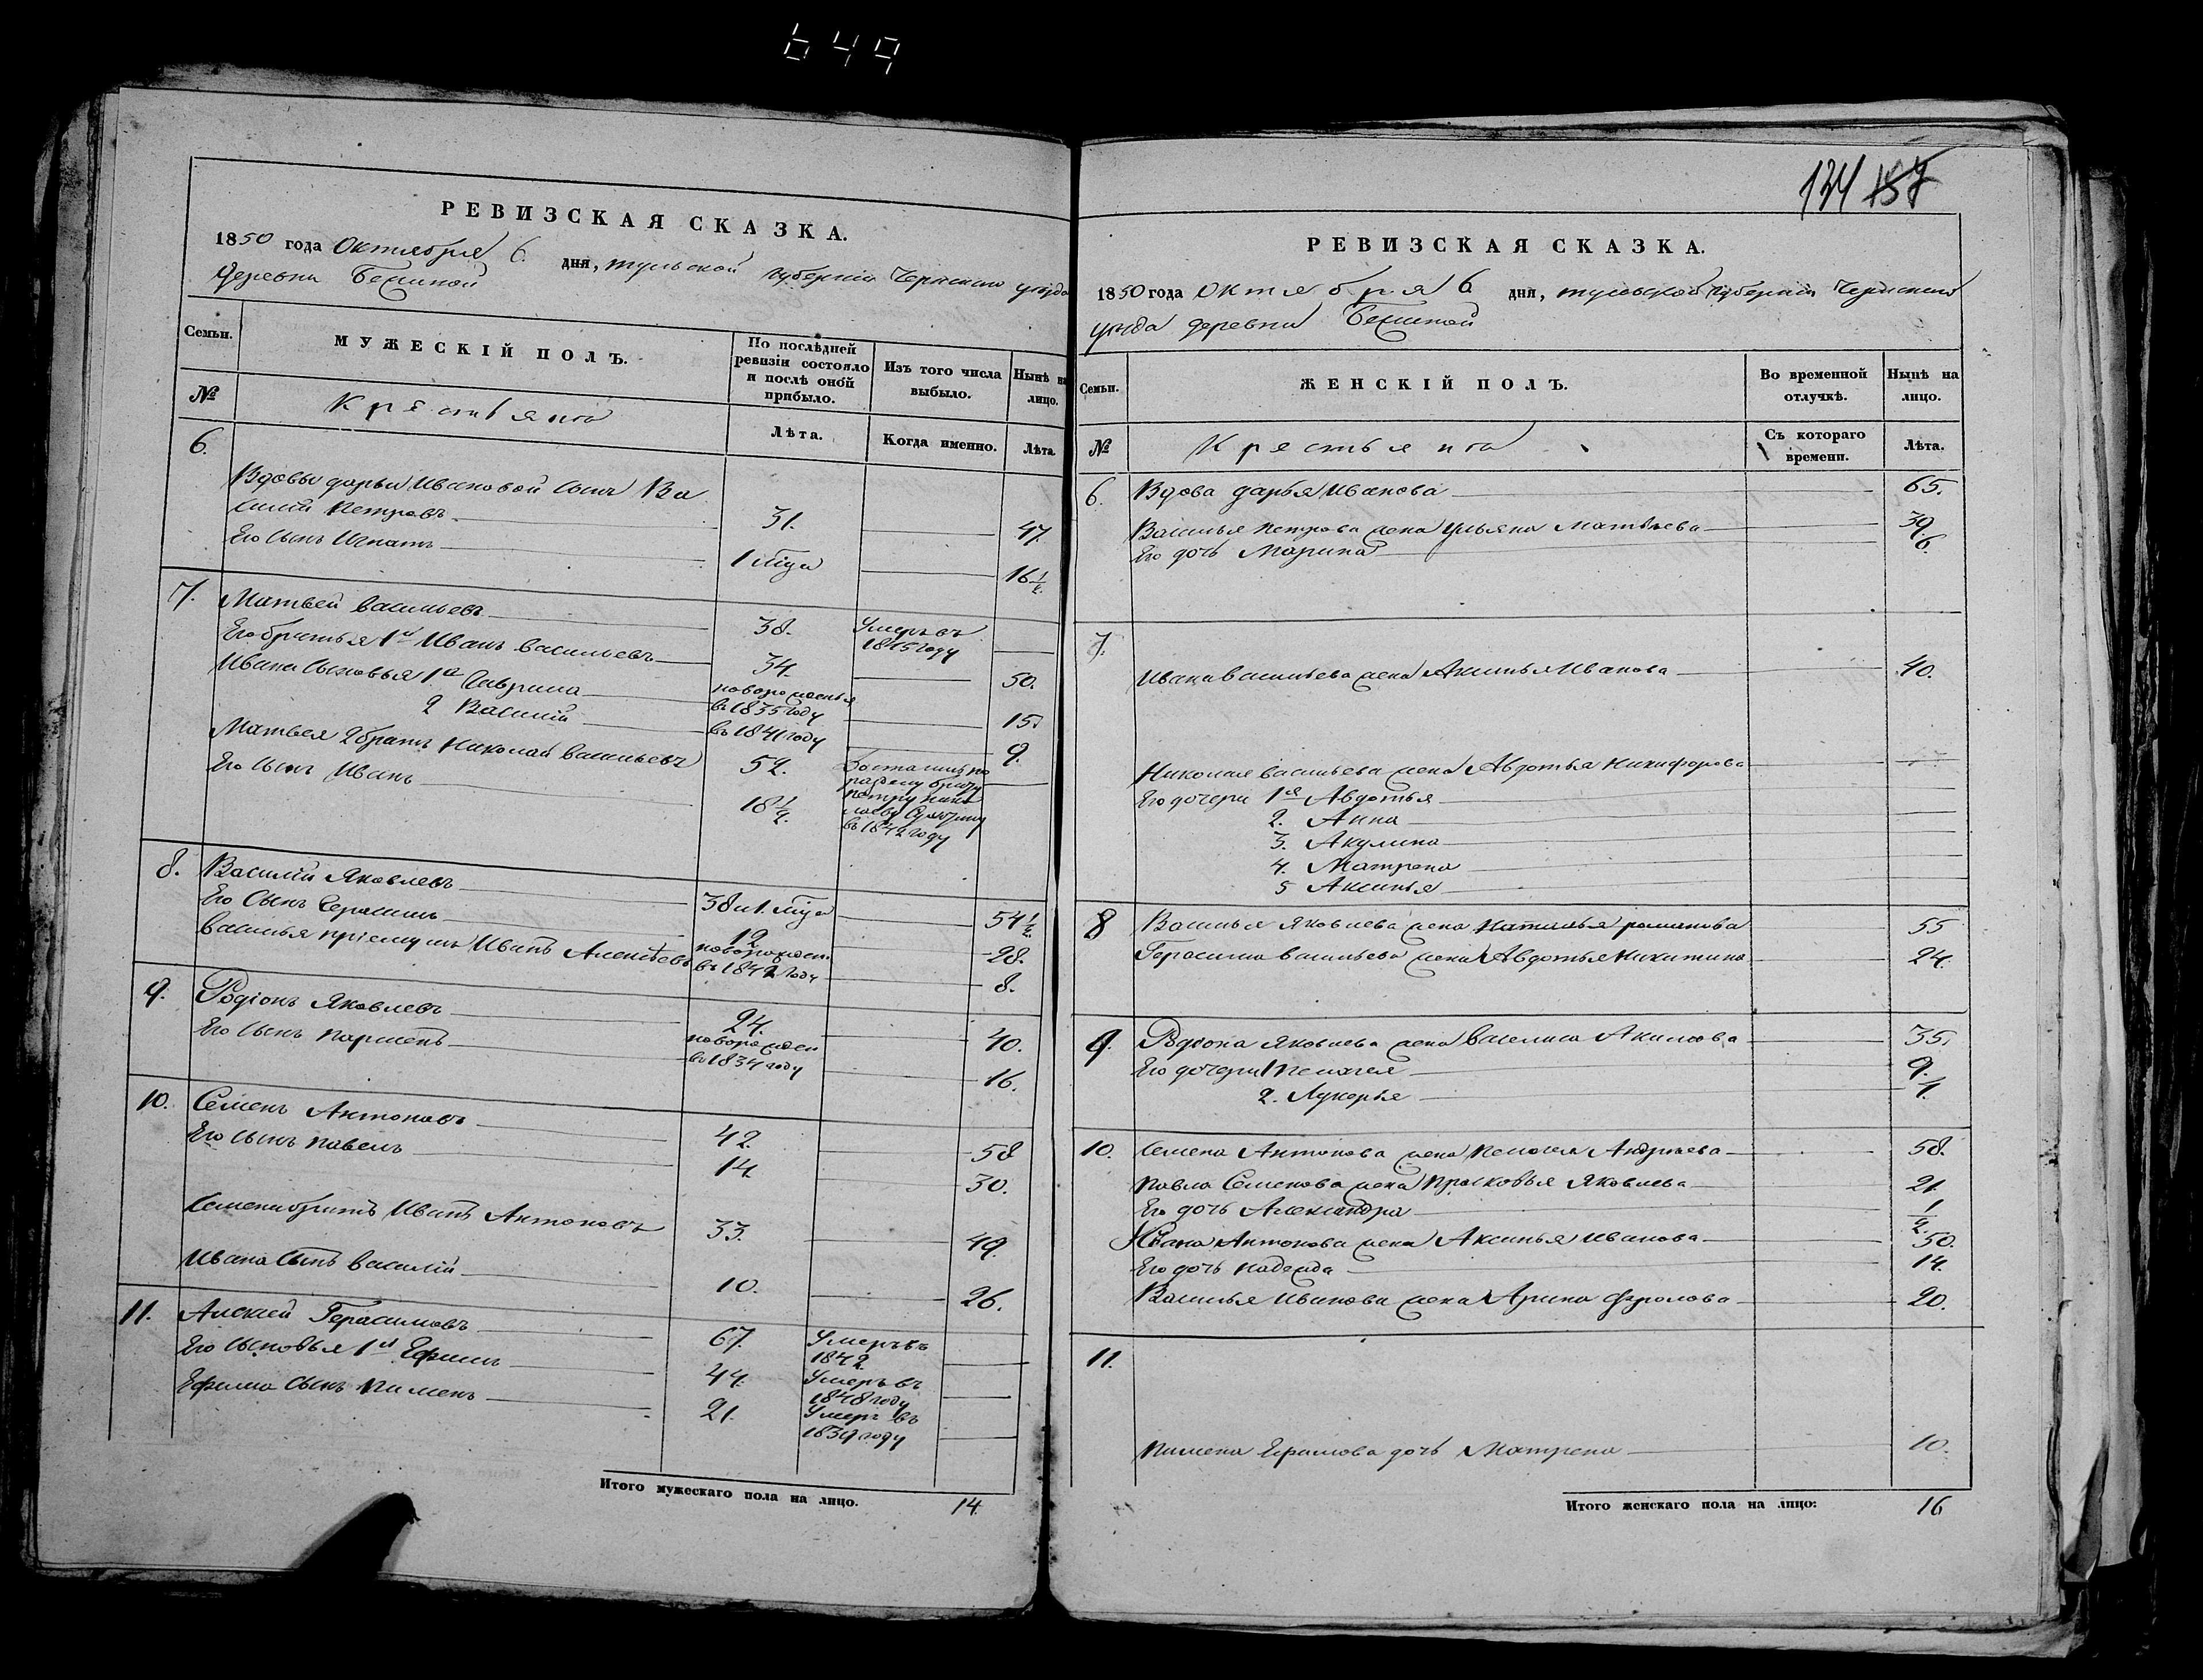 649
РЕВИЗСКАЯ СКАЗКА.
1850 года Октября 6. дня, тульской губернии Чернскаго уезда
деревни
Семьи.
МУЖЕСКІЙ ПОЛЪ.
По послѣдней ревизіи состояло и послѣ оной прибыло.
Изъ того числа выбыло.
Нынѣ на лицо.
№
Крестьяне
Лѣта.
Когда именно.
Лѣта
6.
Вдовы дарьи Ивановой сынъ Ва
силій Петровъ 31. 47.
Его сынъ Игнатъ 1 міца 16 1/2.
7. Матвей васильевъ 38. Умеръ въ 1845 году
Его братья 1й Иванъ васильевъ 34. 50.
Ивана сыновья 1й Гаврила новорожденъ въ 1835 году 15.
2 Василій въ 1841 году 9.
Матвея 2 братъ Николай васильевъ 52.
Его сынъ Иванъ 18 1/2. въ 1842 году
8. Василій Яковлевъ 38 и 1. міца 54 1/2
Его Сынъ Герасимъ 12 28.
василья пріемышъ Иванъ Алексѣевъ новорожден въ 1842 году 8.
9. Родіонъ Яковлевъ 24. 40.
Его сынъ парменъ новорожден въ 1834 году 16.
10. Семенъ Антоновъ 42. 58
Его сынъ павелъ 14 30.
Семена братъ Иванъ Антоновъ 33. 49.
Ивана сынъ василій 10. 26.
11. Алексей Герасимовъ 67. Умеръ въ 1842.
Его сыновья 1й Ефимъ 44. Умеръ въ 1848 году
Ефима сынъ пименъ 21. Умеръ въ 1839 году
Итого мужескаго пола на лицо. 14.
134 157
РЕВИЗСКАЯ СКАЗКА.
1850 года октября 6 дня, тульской губернии Чернскаго
уезда деревни
Семьи.
ЖЕНСКІЙ ПОЛЪ.
Во временной отлучкѣ.
Нынѣ на лицо.
№
Крестьяне
Съ котораго времени.
Лѣта.
6. Вдова дарья Иванова 65.
Василья петрова жена Ульяна Матвѣева 39
Его дочь Марина 6.
7.
Ивана васильева жена Аксинья Иванова 40.
Николая васильева жена Авдотья Никифорова
Его дочери 1я Авдотья
2. Анна
3. Акулина
4. Матрена
5 Аксинья
8 Василья Яковлева жена Наталья романова 55
Герасима васильева жена Авдотья Никитина 24.
9. Родіона Яковлева жена василиса Акимова 35.
Его дочери 1 пелагея 9.
2. Лукерья 1.
10. Семена Антонова жена пелагея Андреева 58.
павла Семенова жена прасковья Яковлева 21.
Его дочь Александра 1/2.
Ивана Антонова жена Аксинья иванова 50.
Его дочь надежда 14.
Василья иванова жена Арина фролова 20.
11.
пимена Ефимова дочь Матрена 10.
Итого женскаго пола на лицо: 16